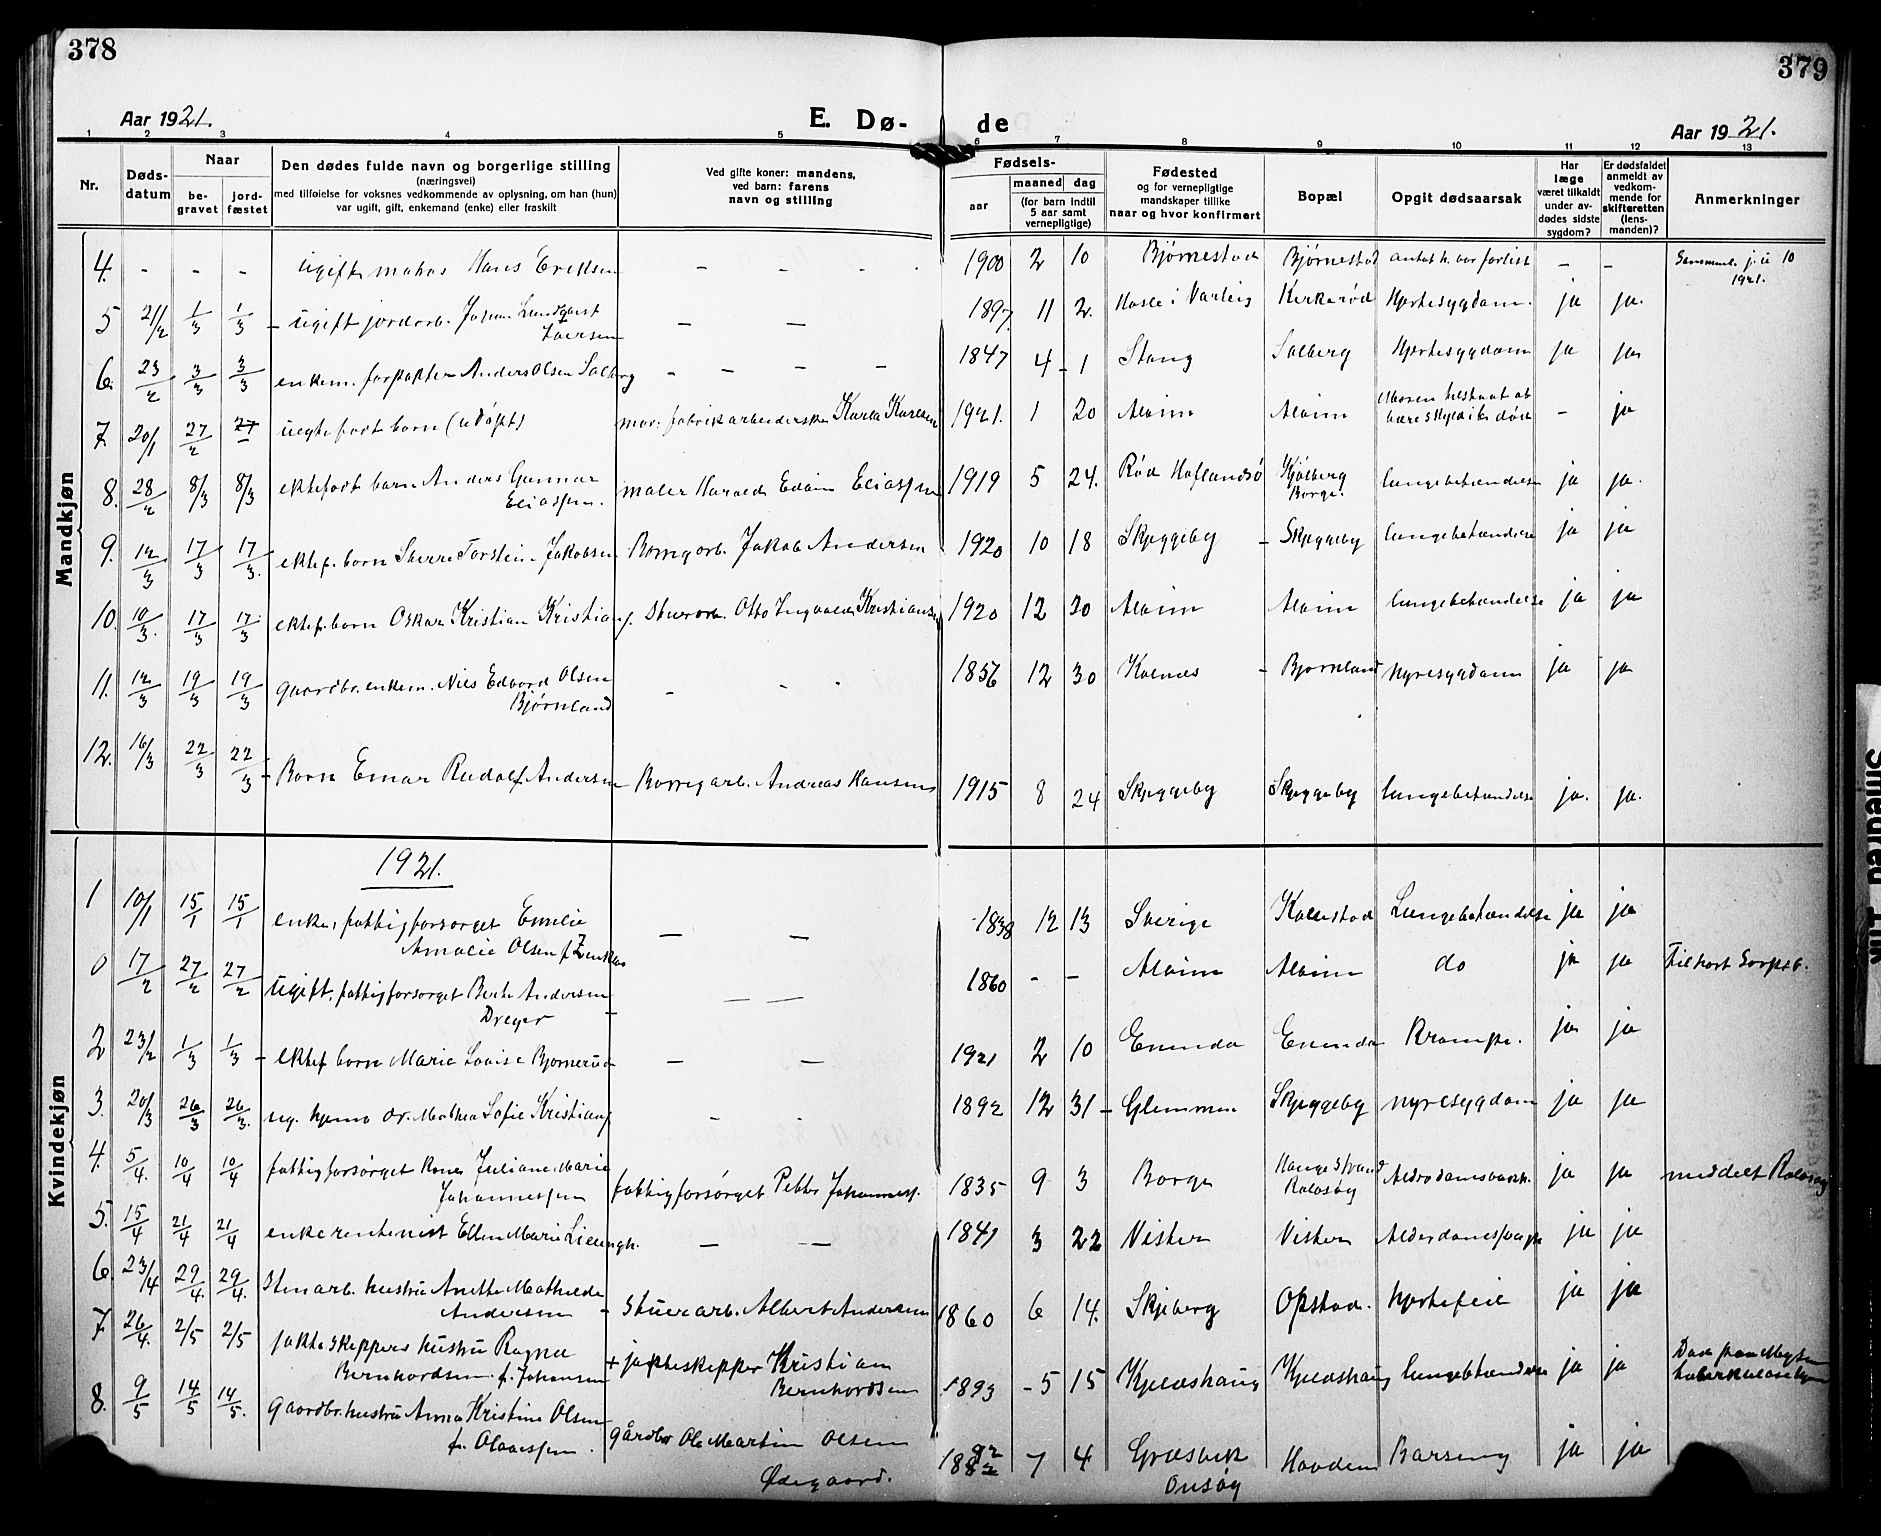 378
379
Aar 1921.
E. Dø-
de
Aar 1921.
1 2 3 4 5 6 7 8 9 10 11 12 13
Nr.
Døds-
datum
Naar
be-
gravet
jord-
fæstet
Den dødes fulde navn og borgerlige stilling
(næringsvei)
med tilføielse for voksnes vedkommende av oplysning, om han (hun)
var ugift, gift, enkemand (enke) eller fraskilt
Ved gifte koner: mandens,
ved barn: farens
navn og stilling
Fødsels-
aar
maaned dag
(for barn indtil
5 aar samt
vernepligtige)
Fødested
og for vernepligtige
mandskaper tillike
naar og hvor konfirmert
Bopæl
Opgit dødsaarsak
Har
læge
været tilkaldt
under av-
dødes sidste
sygdom?
Er dødsfaldet
anmeldt av
vedkom-
mende for
skifteretten
(lens-
manden)?
Anmerkninger
Mandkjøn
4. - - - ugift matros Hans Eriksen - - - 1900 2 10 Bjørnestad Bjørnestad antat h. var forlist - - 10
1921.
5 21/2 1/3 1/3 - ugift jordarb. Johan Lundqvist
Iversen - - 1897 11 2. Hasle i Varteig Kirkerød Hjertesygdom. ja ja.
6. 23/2 3/3 3/3 enkem. forpakter Anders Olsen Solberg - - - - 1847 4 - 1 Stang Solberg Hjertesygdom ja ja
7. 20/1 27/2 27 uegte født barn (udøpt) mor: fabrikarbeiderske Karla Karlsen 1921. 1 20 Alvim Alvim Moren tilstaat at
være skyld i dets død - ja
8. 28/2 8/3 8/3 ektefødt barn Anders Gunnar
Eliassen. maler Harald Edvin Eliassen 1919 5 24. Rød Haflandsø Kjølberg
Borge. lungebetændelse ja ja.
9. 12/3 17/3 17/3. ektef. barn Sverre Torstein Jakobsen Borregarb. Jakob Andersen 1920 10 18 Skjeggeby - Skjeggeby lungebetændelse ja ja
10. 10/3. 17/3 17/3 ektef. barn Oskar Kristian Kristians. Stuerarb. Otto Ingvald Kristiansen 1920 12 20 Alvim Alvim lungebetændelse ja ja
11. 12/3 19/3 19/3 gaardbr. enkem. Nils Edvard Olsen
Bjørnland - - - 1856 12 30 Kalnes - Bjørnland nyresygdom ja ja
12. 16/3 22/3 22/3 - Barn Einar Rudolf Andersen Borregarb. Andreas Hansen 1915 8 24 Skjeggeby Skjeggeby lungebetændelse ja. ja.
Kvindekjøn
1921.
1 10/1 15/1 15/1 enke, fattigforsørget Emilie
Amalie Olsen f. - - 1838 12 13 Sverige Kalnestad Lungebetændelse ja ja
0 17/2 27/2 27/2 ugift, fattigforsørget Berte Andersen
Dreyer - - 1860 - - Alvim Alvim do ja ja Tilhört Sarpsb.
2 23/2 1/3 1/3 - ektef barn Marie Lovise Bjørnerud - - 1921 2 10 Enenda Enenda Krampe. ja ja
3. 20/3 26/3 26/3. ug. hjemv. dr. Mathea Sofie Kristians. - - 1892 12 31 - Glemmen Skjeggeby nyresygdom ja ja
4. 5/4. 10/4 10/4 fattigforsørget kone Juliane Marie
Johannessen fattigforsørget Petter Johanness. 1835 9 3 Borge Hauge Strand
Rolvsøy Alderdomssvakh. ja ja meddelt Rolvsøy
5. 15/4 21/4 21/4 enke rentenist Ellen Marie - - 1841 3 22 Visker Visker Alderdomssvagh ja ja
6. 23/4 29/4. 29/4. Stuerarb. hustru Anette Mathilde
Andersen - Stuerarb. Albert Andersen 1860 6 14. Skjeberg Opstad. hjertefeil ja ja
7. 26/4. 2/5 2/5 jakteskippers hustru Ragna
Bernhardsen f. Johansen + jakteskipper Kristian
Bernhardsen 1893 - 5 15 Kjelshaug Kjelshaug lungebetændelse ja ja
8. 9/5 14/5 14/5. gaardbr. hustru Anna Kristine Olsen
f. Olavessen. gårdbr Ole Martin Olsen
Ødegaard. 1892 7 4 Græsvik
Onsøy Haugen Barseng ja ja